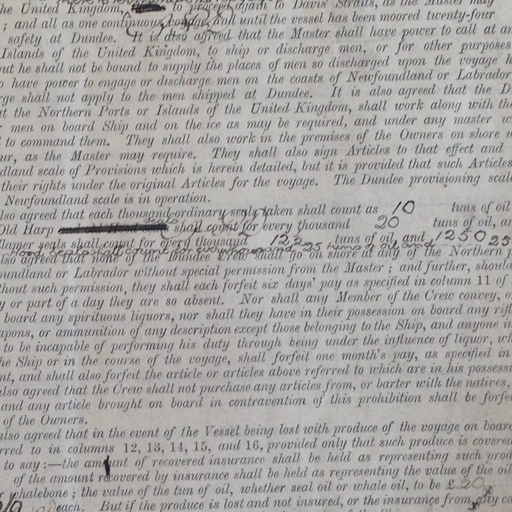 he United Kingdom again to Davis' Straits, as the Master may
; and all as one continuous voyage, and until the vessel has been moored twenty-four
safety at Dundee. It is also agreed that the Master shall have power to call at an
Islands of the United Kingdom, to ship or discharge men, or for other purposes
ut he shall not be bound to supply the places of men so discharged upon the voyage h
o have power to engage or discharge men on the coasts of Newfoundland or Labrador
rge shall not apply to the men shipped at Dundee. It is also agreed that the D
at the Northern Ports or Islands of the United Kingdom, shall work along with the
r men on board Ship and on the ice as may be required, and under any master w
l to command them. They shall also work in the premises of the Owners on shore w
ur, as the Master may require. They shall also sign Articles to that effect and
dland scale of Provisions which is herein detailed, but it is provided that such Articles
their rights under the original Articles for the voyage. The Dundee provisioning scale
Newfoundland scale is in operation.
lso agreed that each thousand ordinary seals taken shall count as 10 tuns of oil
Old Harp shall count for every thousand 20 tuns of oil, an
lapper seals shall count for every thousand 12½ tuns of oil, and 1250 25
lso agreed that should of the Dundee crew shall go on shore at any of the Northern p
oundland or Labrador without special permission from the Master; and further, should
thout such permission, they shall each forfeit six days' pay as specified in column 11 of
y or part of a day they are so absent. Nor shall any Member of the Crew convey, o
board any spirituous liquors, nor shall they have in their possession on board any rifl
apons, or ammunition of any description except those belonging to the Ship, and anyone in
to be incapable of performing his duty through being under the influence of liquor, wh
he Ship or in the course of the voyage, shall forfeit one month's pay, as specified in
nt, and shall also forfeit the article or articles above referred to which are in his possess
also agreed that the Crew shall not purchase any articles from, or barter with the natives,
and any article brought on board in contravention of this prohibition shall be forfei
of the Owners.
also agreed that in the event of the Vessel being lost with produce of the voyage on board
rred to in columns 12, 13, 14, 15, and 16, provided only that such produce is covered
to say:—the amount of recovered insurance shall be held as representing such prod
of the amount recovered by insurance shall be held as representing the value of the oil
r whalebone; the value of the tun of oil, whether seal oil or whale oil, to be £20
each. But if the produce is lost and not insured, or the insurance from any ca